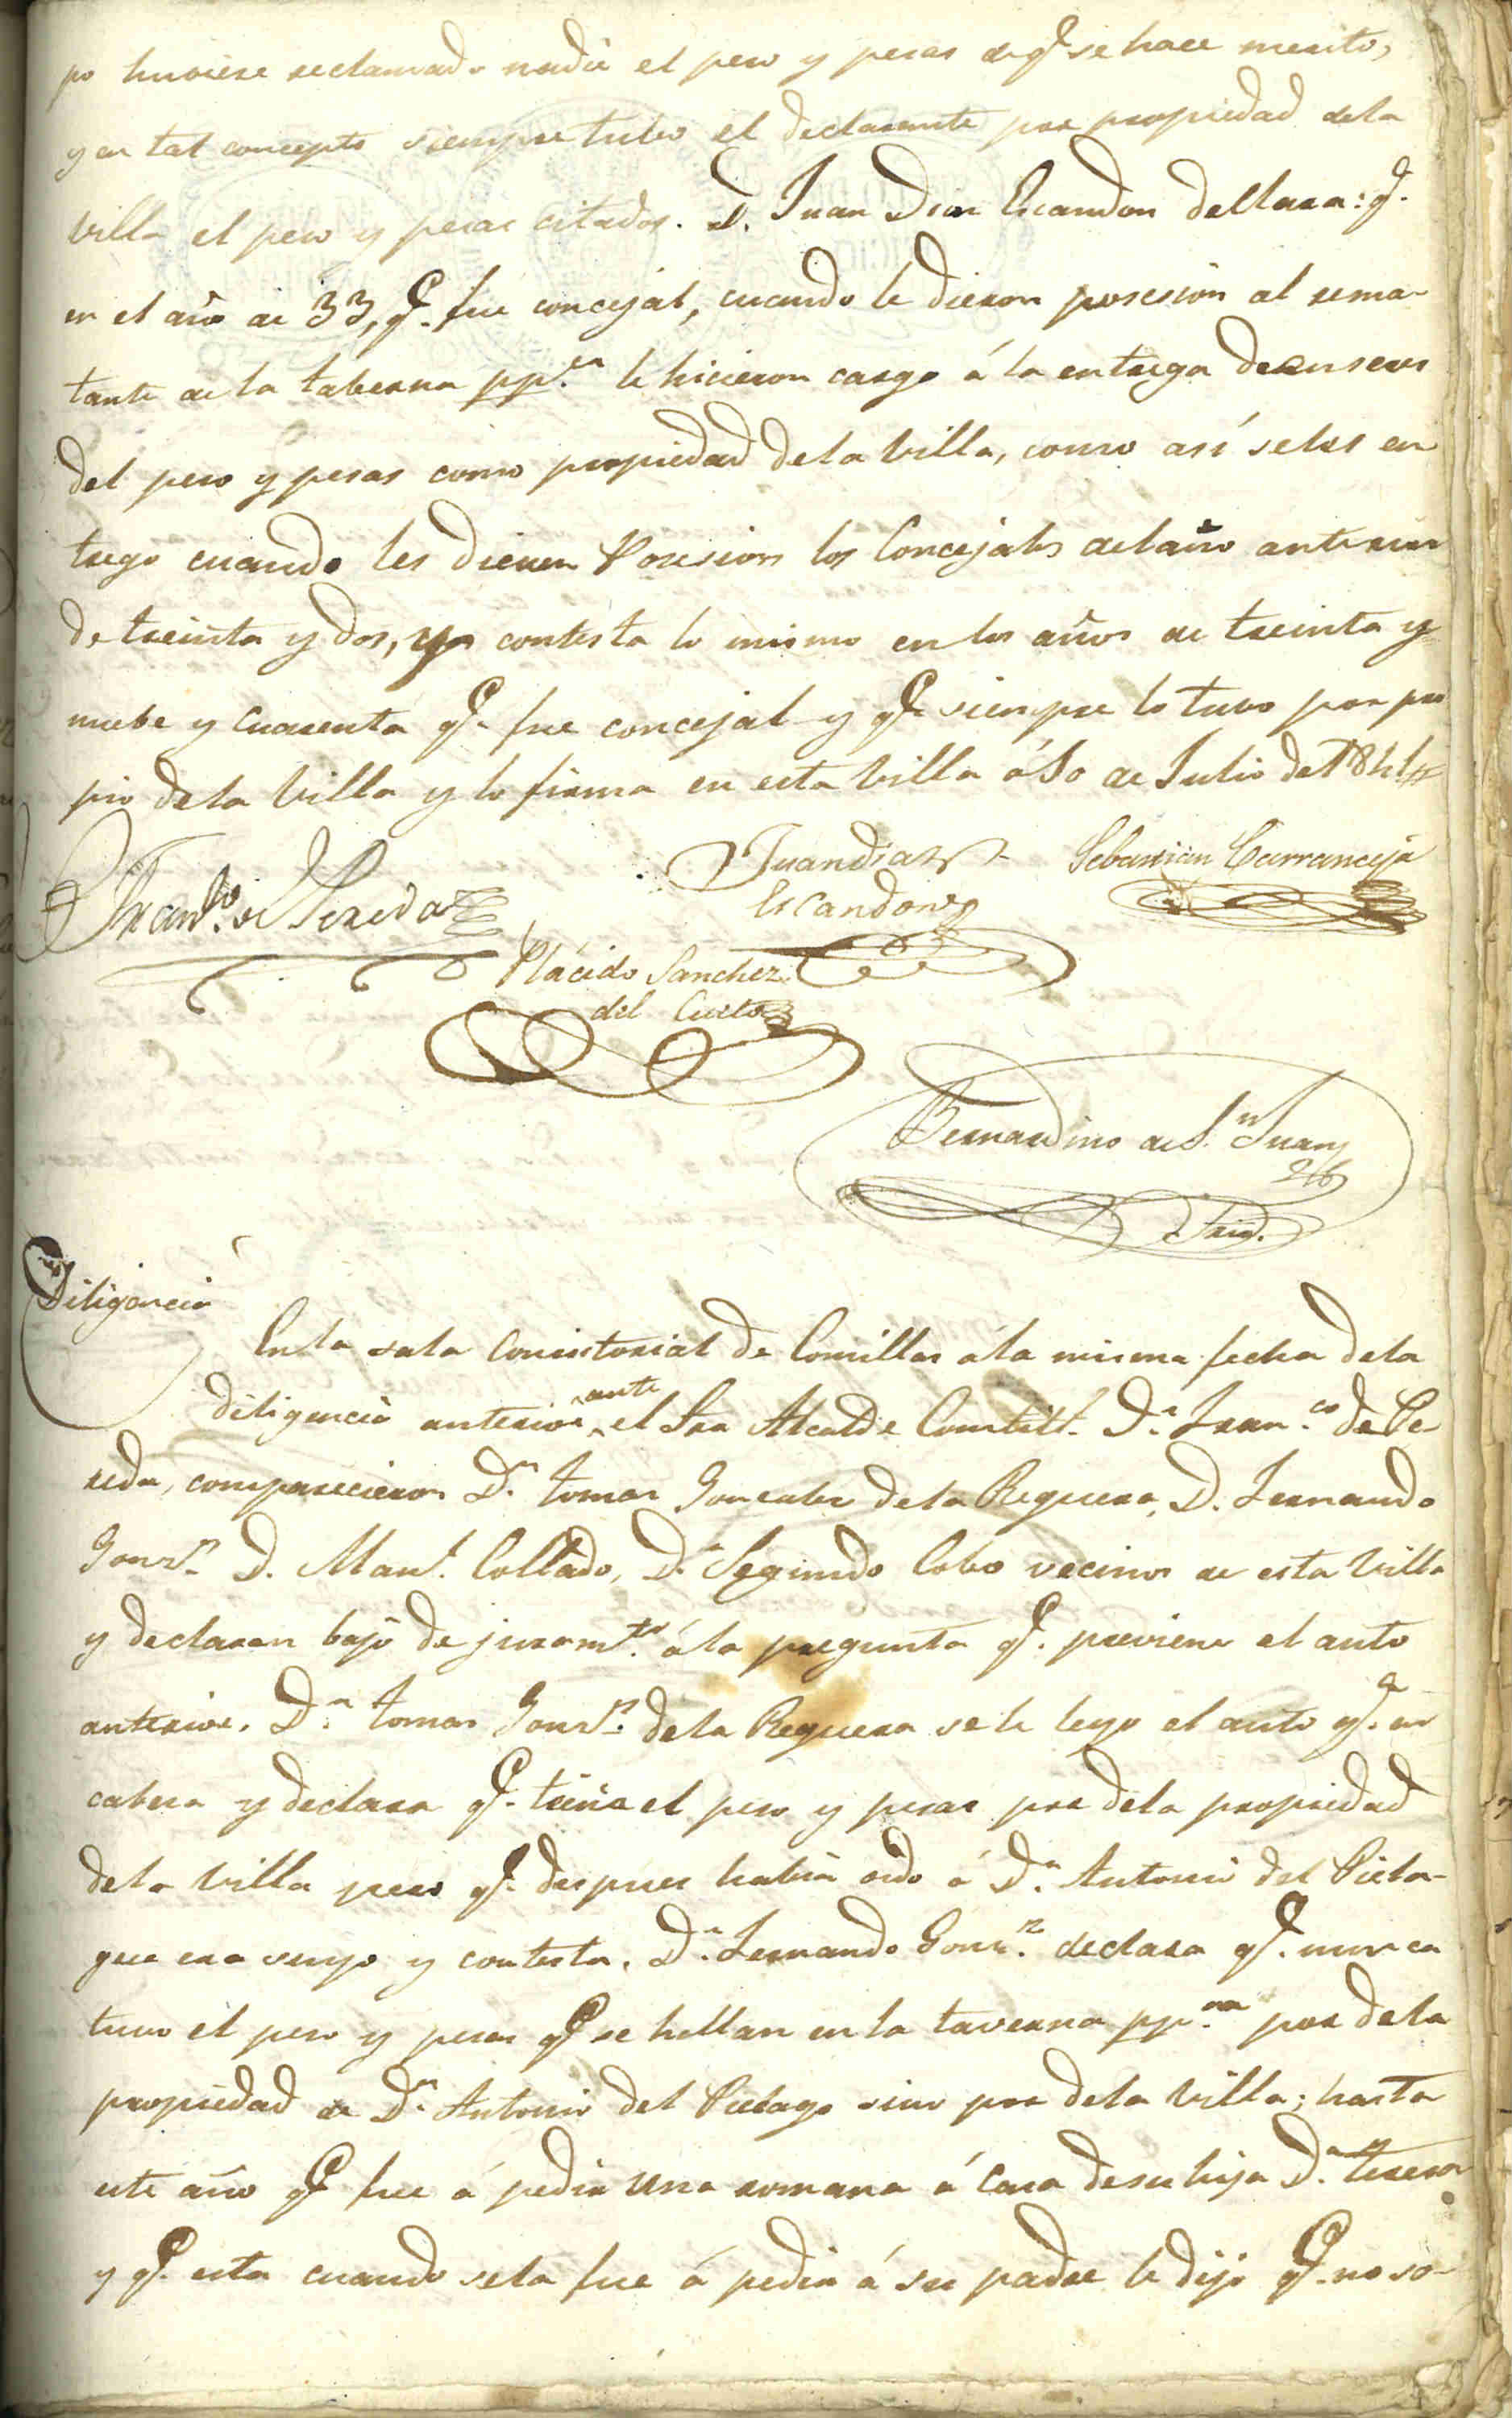 po huviese reclamado nadie el peso y pesas de q.e se hace merito,
y en tal concepto siempre tubo el declarante por propiedad dela
villa el peso y pesas citados. D. Juan Diaz Escandon declara: q.e
en el año de 33, q.e fue concejal, cuando le dieron posesion al rema-
tante de la taberna pp.ca le hicieron cargo á la entrega de enseres
del peso y pesas como propiedad dela Villa, como así selos en
trego cuando les dieron Posesion los Concejales del año anterior
de treinta y dos, y contesta lo mismo en los años de treinta y
nuebe y cuarenta q.e fue concejal y q.e siempre lo tuvo por pro
pio dela Villa y lo firma en esta Villa á 10 de Julio de 1844
Fran.co de Pereda
Juan Diaz
Escandon
Sebastian Carranceja
Plácido Sanchez
del Cueto
Bernardino de S.n Juan
Srio.
Diligencia
En la sala Consistorial de Comillas á la misma fecha dela
diligencia anterior ante el Sor Alcalde Constitl. D.n Fran.co de Pe-
reda, comparecieron D.n Tomas Gonzalez dela Reguera, D. Fernando
Gonz.z D. Man.l Collado, D.n Segundo Cobo vecinos de esta Villa
y declaran bajo de juram.to á la pregunta q.e previene el auto
anterior. D.n Tomas Gonz.z dela Reguera se le leyo el auto q.e en
cabeza y declara q.e tenia el peso y pesas por dela propiedad
dela Villa pero q.e despues habia oido á D.n Antonio del Piela-
go que era suyo y contesta. D.n Fernando Gonz.z declara q.e nunca
tuvo el peso y pesas q.e se hallan en la taverna pp.ca por dela
propiedad de D.n Antonio del Pielago sino por dela Villa; hasta
este año q.e fue á pedir una romana á casa de su hija D.a Teresa
y q.e esta cuando sela fue á pedir á su padre le dijo q.e no so-